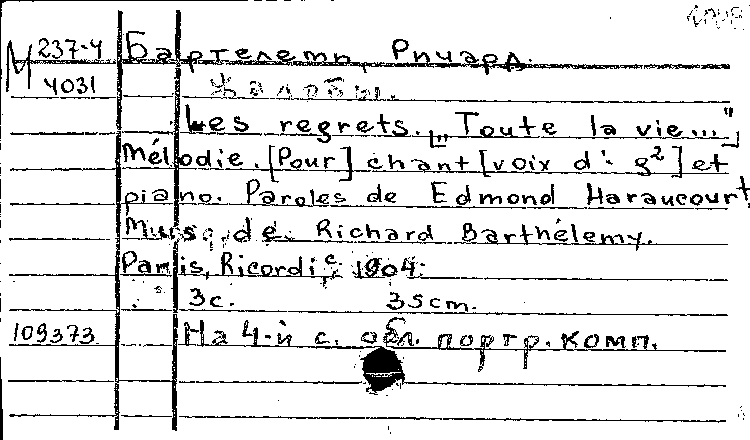 М 237-4
4031
Бартелеми, Ричард.
Жалобы.
Les regrets. ["Toute la vie..."]
Mélodie. [Pour] chant [voix d'- g²] et
piano. Paroles de Edmond Haraucourt,
Mus. de Richard Barthélemy.
Paris, Ricordi, c 1904.
3с. 35cm.
109373
На 4-й с. обл. портр. комп.